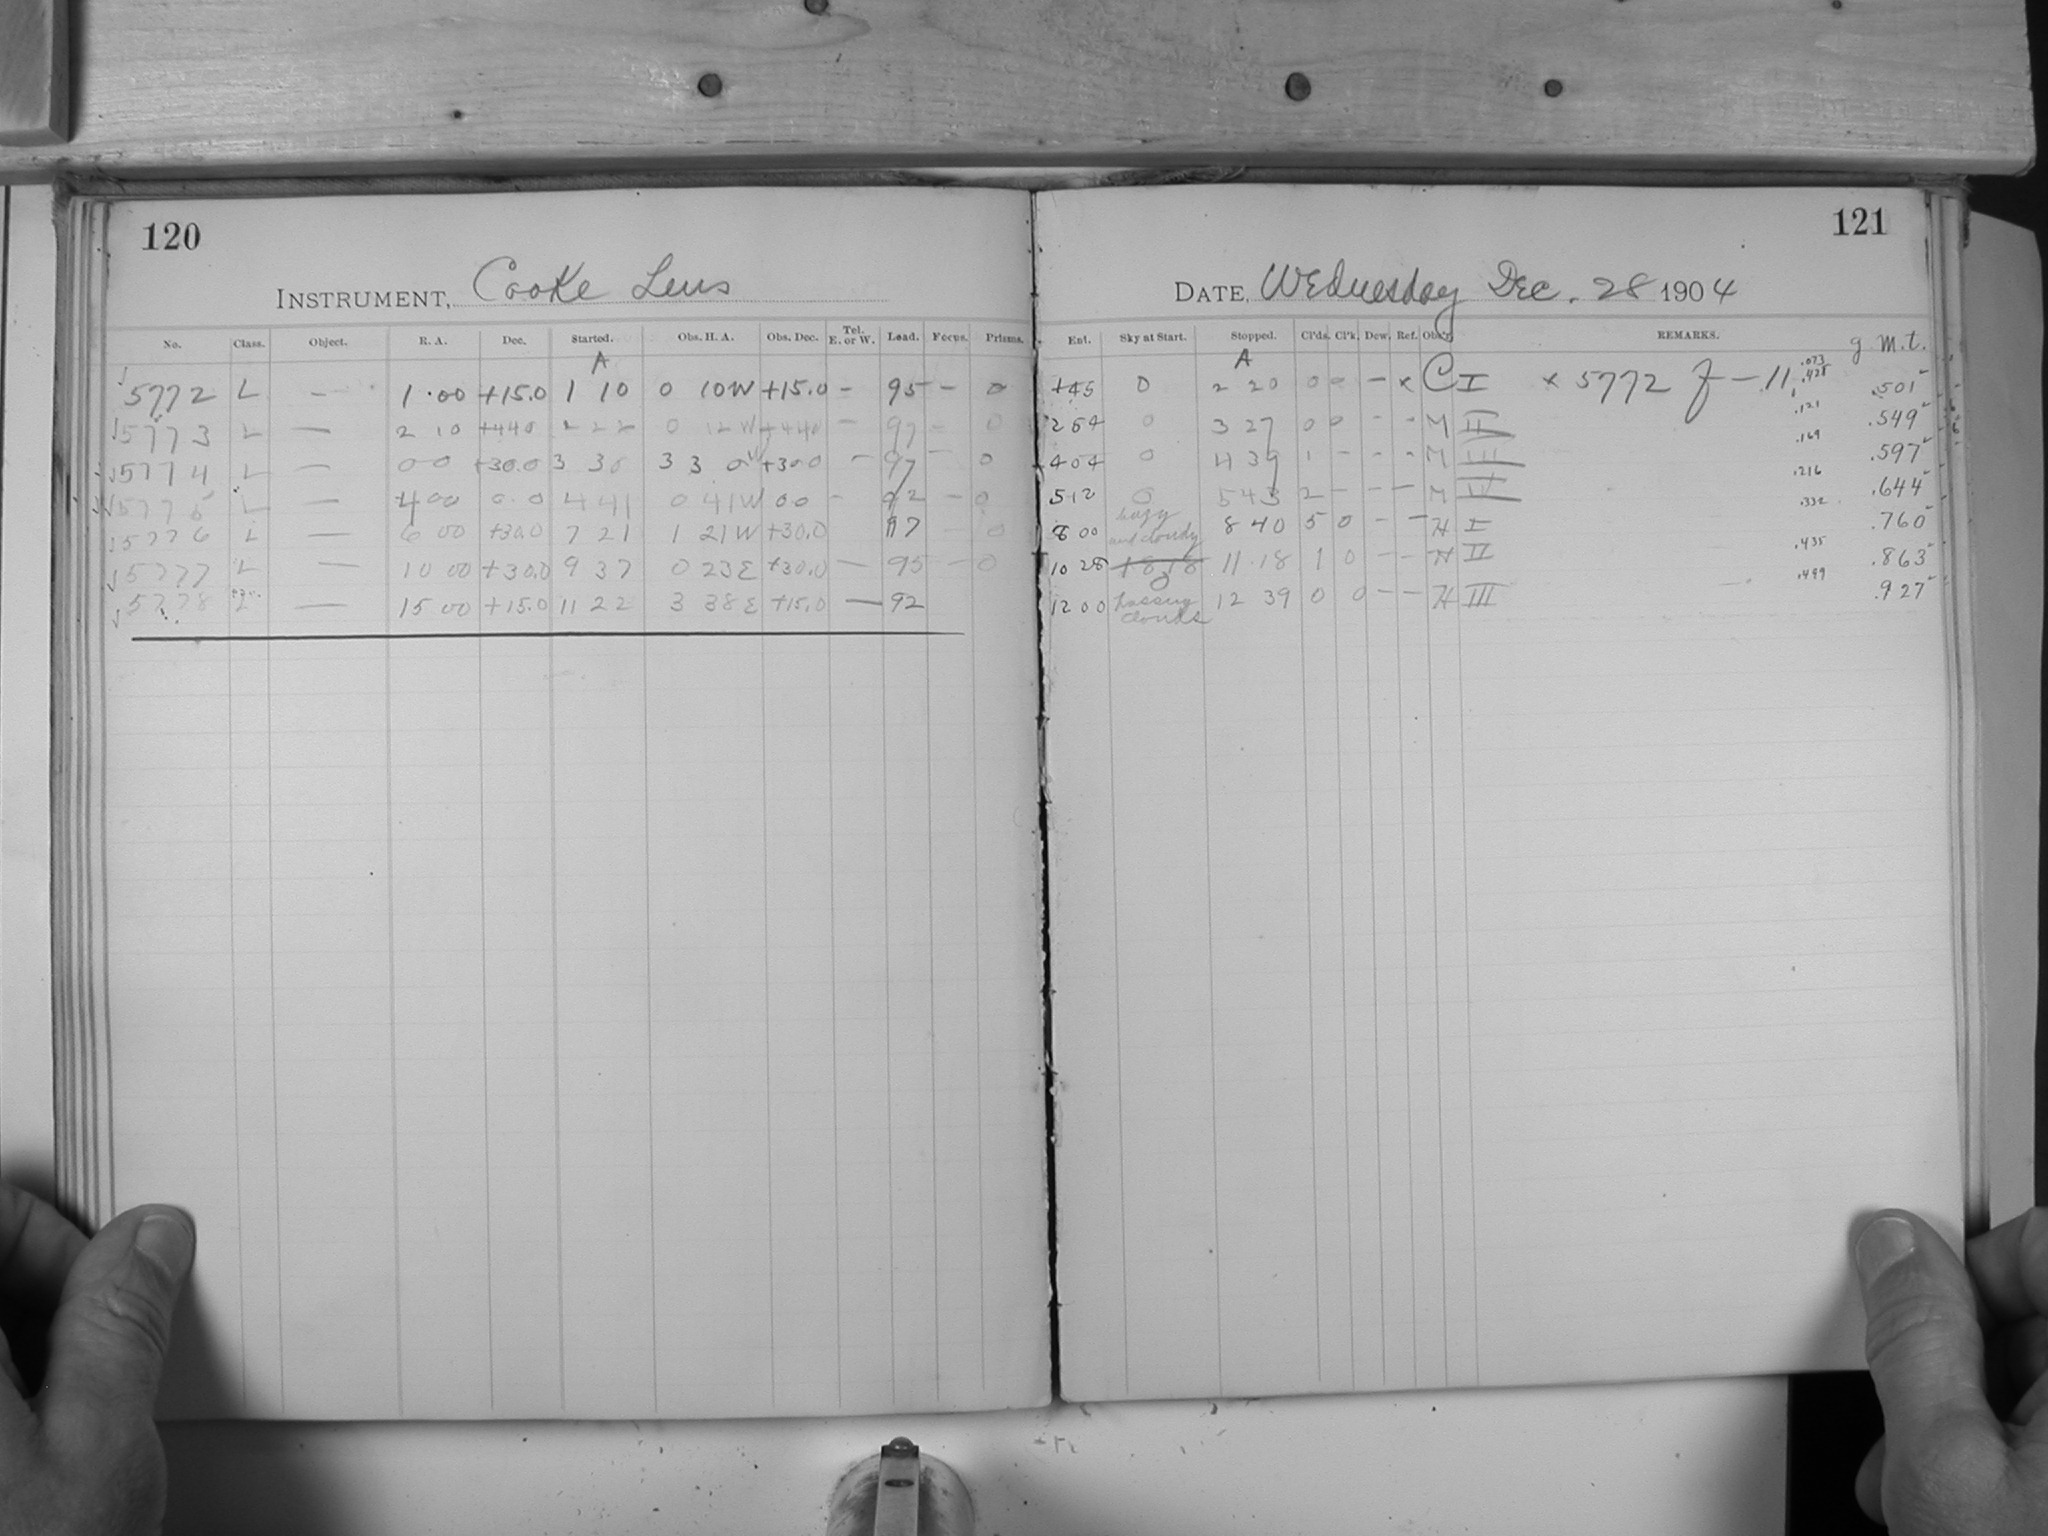 120
INSTRUMENT, Cooke Lens
No. Class. Object. R. A. Dec. Started. Obs. H. A. Obs. Dec. Tel. E. or W. Load. Focus. Prisms.
A
5772 L — 1 00 +15.0 1 10 0 10W +15.0 — 95 — 0
5773 L — 2 10 +44.0 2 22 0 12W +44.0 — 97 — 0
5774 L — 00 +30.0 3 30 3 30W +30.0 — 97 — 0
5775 L — 4 00 0.0 4 41 0 41W 00 — 92 — 0
5776 L — 6 00 +30.0 7 21 1 21W +30.0 97 — 0
5777 L — 10 00 +30.0 9 37 0 23E +30.0 — 95 — 0
5778 L — 15 00 +15.0 11 22 3 38E +15.0 — 92
121
DATE, Wednesday Dec. 28 1904
Ent. Sky at Start. Stopped. Cl'ds. Cl'k. Dew. Ref. Obs'r. REMARKS. g. m. t.
A
145 0 2 20 0 0 — x C I x 5772 f — 11 .073 .428 .501
254 0 3 27 0 0 - - M II .121 .549
404 0 4 39 1 - - - M III .169 .597
512 0 5 43 2 - - - M IV .216 .644
8 00 hazy and cloudy 8 40 5 0 - - H I .332 .760
10 28 1818 0 11.18 1 0 - - H II .435 .863
12 00 passing clouds 12 39 0 0 - - H III .499 .927